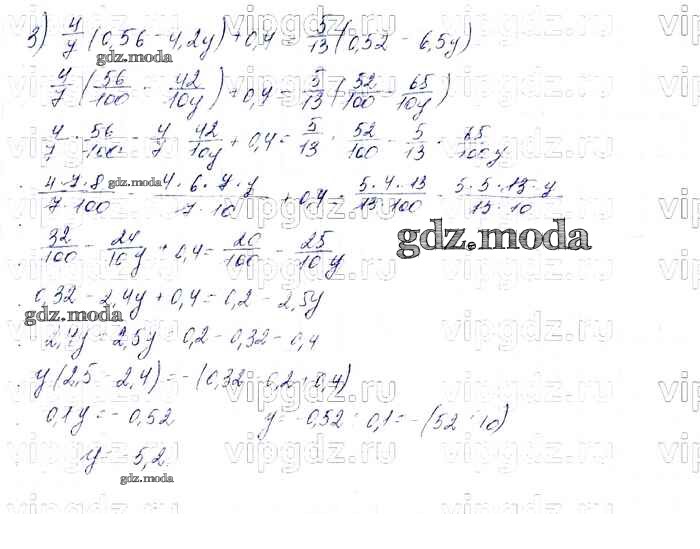 3) 4/7 (0,56 - 4,2y) + 0,4 = 5/13 (0,52 - 6,5y)
gdz.moda
4/7 (56/100 - 42/10 y) + 0,4 = 5/13 (52/100 - 65/10 y)
4/7 · 56/100 - 4/7 · 42/10 y + 0,4 = 5/13 · 52/100 - 5/13 · 65/100 y
4·7·8/7·100 - 4·6·7·y/7·10 + 0,4 = 5·4·13/13·100 - 5·5·13·y/13·10
gdz.moda
32/100 - 24/10 y + 0,4 = 20/100 - 25/10 y
gdz.moda
0,32 - 2,4y + 0,4 = 0,2 - 2,5y
gdz.moda
2,4y - 2,5y = 0,2 - 0,32 - 0,4
y (2,5 - 2,4) = - (0,32 - 0,2 + 0,4)
0,1y = - 0,52 y = - 0,52 : 0,1 = - (52 : 10)
y = - 5,2
gdz.moda
vipgdz.ru
vipgdz.ru
vipgdz.ru